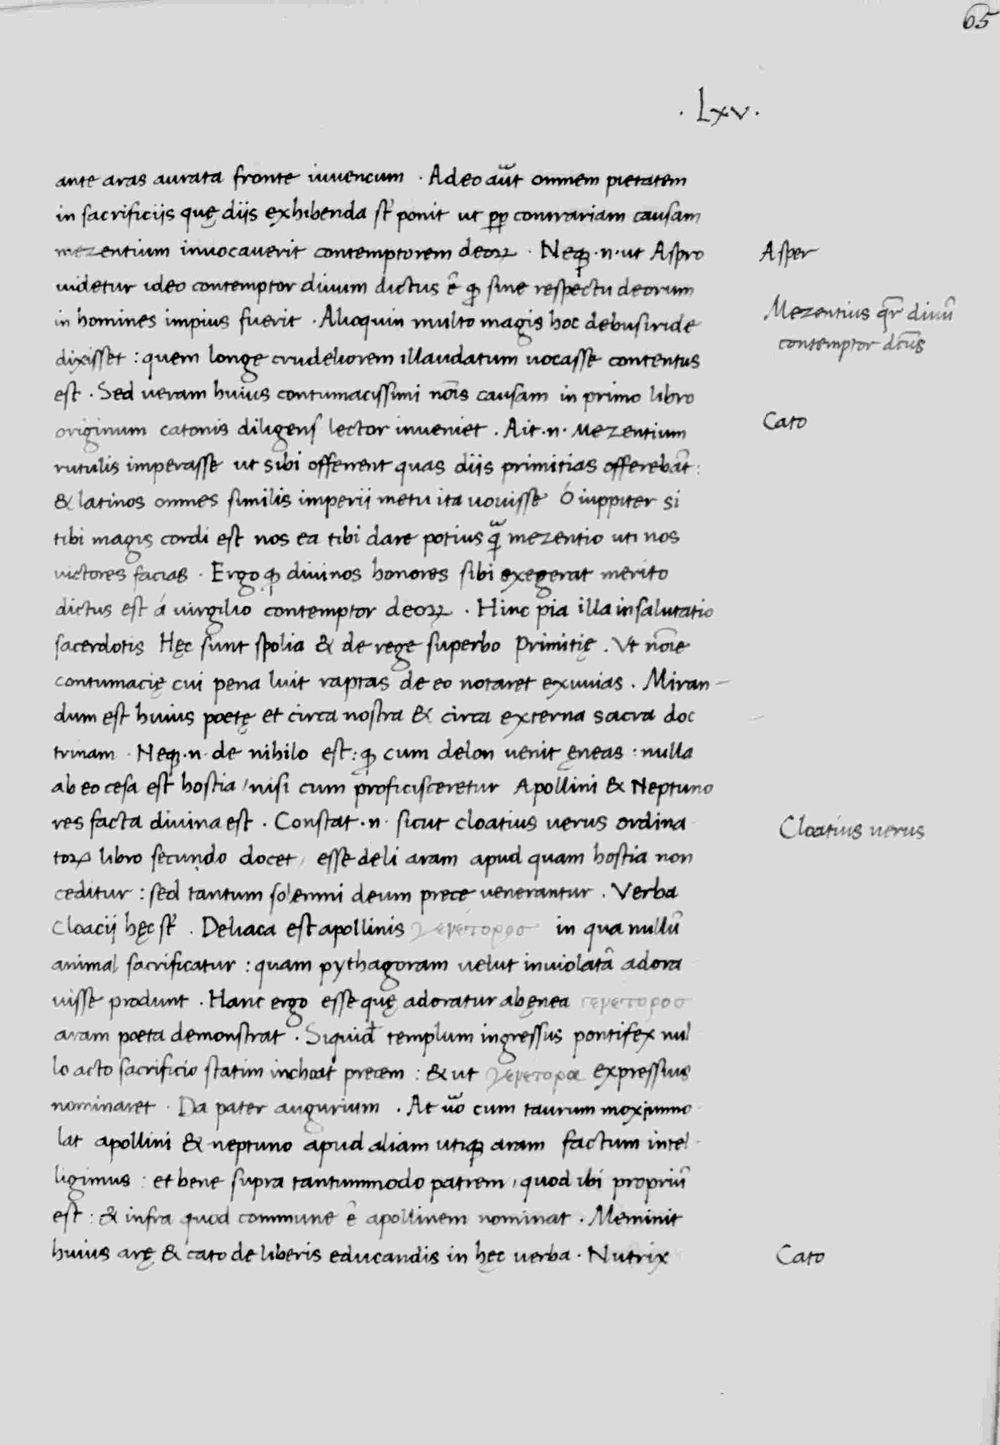 65
. Lxv .
ante aras aurata fronte iuuencum . Adeo aūt omnem pietatem
in sacrificijs quę diis exhibenda st̄ ponit ut pp̄ contrariam causam
mezentium inuocauerit contemptorem deoꝝ . Neqꝫ .n. ut Aspro
Asper
uidetur ideo contemptor diuum dictus ē qꝫ sine respectu deorum
in homines impius fuerit . Alioquin multo magis hoc debusiride
Mezentius qr̄ diuū
contemptor dc̄us
dixisset : quem longe crudeliorem illaudatum uocasse contentus
est . Sed ueram huius contumacissimi nōis causam in primo libro
originum catonis diligens lector inueniet . Ait .n. Mezentium
Cato
rutulis imperasse ut sibi offerrent quas diis primitias offerebāt :
& latinos omnes similis imperii metu ita uouisse Ó iuppiter si
tibi magis cordi est nos ea tibi dare potius q̄ mezentio uti nos
uictores facias . Ergo qꝫ diuinos honores sibi exegerat merito
dictus est á virgilio contemptor deoꝝ . Hinc pia illa insalutatio
sacerdotis Hęc sunt spolia & de rege superbo Primitię . Vt nōie
contumacię cui pena luit raptas de eo notaret exuuias . Miran-
dum est huius poetę et circa nostra & circa externa sacra doc
trinam . Neqꝫ .n. de nihilo est : qꝫ cum delon uenit ęneas : nulla
ab eo cesa est hostia / nisi cum proficisceretur Apollini & Neptuno
res facta diuina est . Constat .n. sicut cloatius uerus ordina
Cloatius uerus
toꝝ libro secundo docet / esse deli aram apud quam hostia non
ceditur : sed tantum solemni deum prece uenerantur . Verba
Cloacij hęc st̄ . Deliaca est apollinis γενετορος in qua nullū
animal sacrificatur : quam pythagoram uelut inuiolatā adora
uisse produnt . Hanc ergo esse quę adoratur ab ęnea γενετορος
aram poeta demonstrat . Siquid̄ templum ingressus pontifex nul
lo acto sacrificio statim inchoat precem : & ut γενετορα expressius
nominaret . Da pater augurium . At uō cum taurum mox immo
lat apollini & neptuno apud aliam utiqꝫ aram factum intel
ligimus : et bene supra tantummodo patrem / quod ibi propriū
est : & infra quod commune ē apollinem nominat . Meminit
huius arę & cato de liberis educandis in hęc uerba . Nutrix
Cato